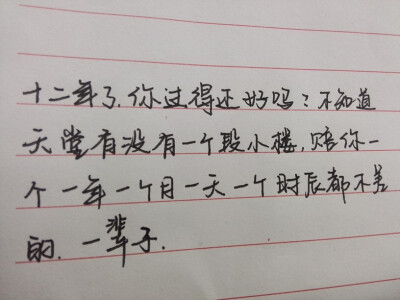 十二年了,你过得还好吗?不知道
天堂有没有一个段小楼,赔你一
个一年一个月一天一个时辰都不差
的.一辈子.